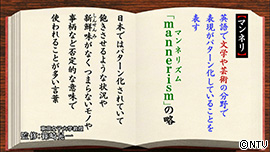 【マンネリ】
英語で文学や芸術の分野で
表現がパターン化していることを
表す
マンネリズム
「mannerism」の略
日本ではパターン化されていて
飽きさせるような状況や
しんせんみ
新鮮味がなく つまらないモノや
事柄など否定的な意味で
使われることが多い言葉
東京女子大学教授
監修:篠崎晃一
©NTV